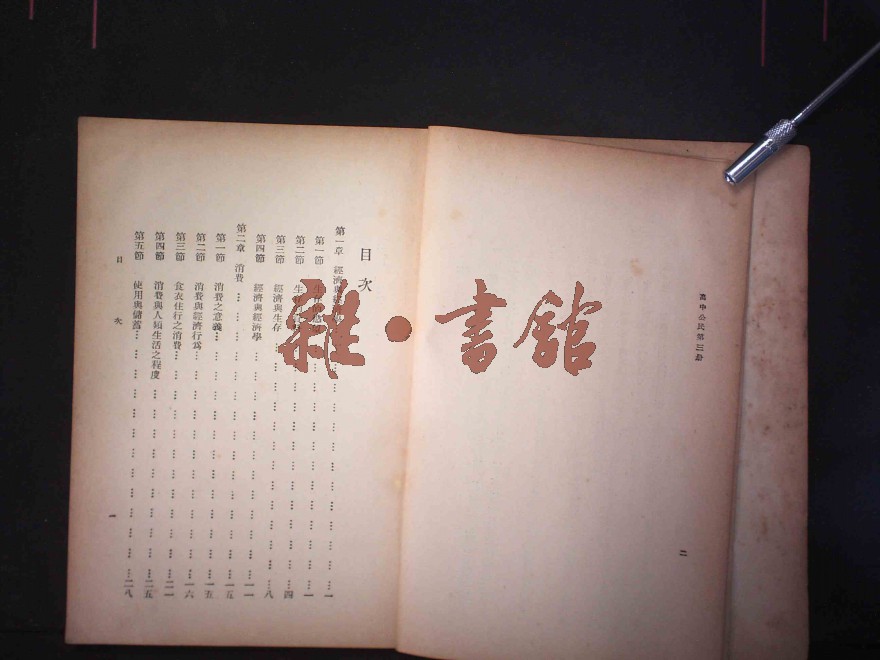 高中公民第三冊
二
目次
第一章 經濟與經濟
第一節 生 一
第二節 生 四
第三節 經濟與生存 八
第四節 經濟與經濟學 一一
第二章 消費 一五
第一節 消費之意義 一五
第二節 消費與經濟行爲 一六
第三節 食衣住行之消費 二一
第四節 消費與人類生活之程度 二五
第五節 使用與儲蓄 二八
目次
一
雜·書館